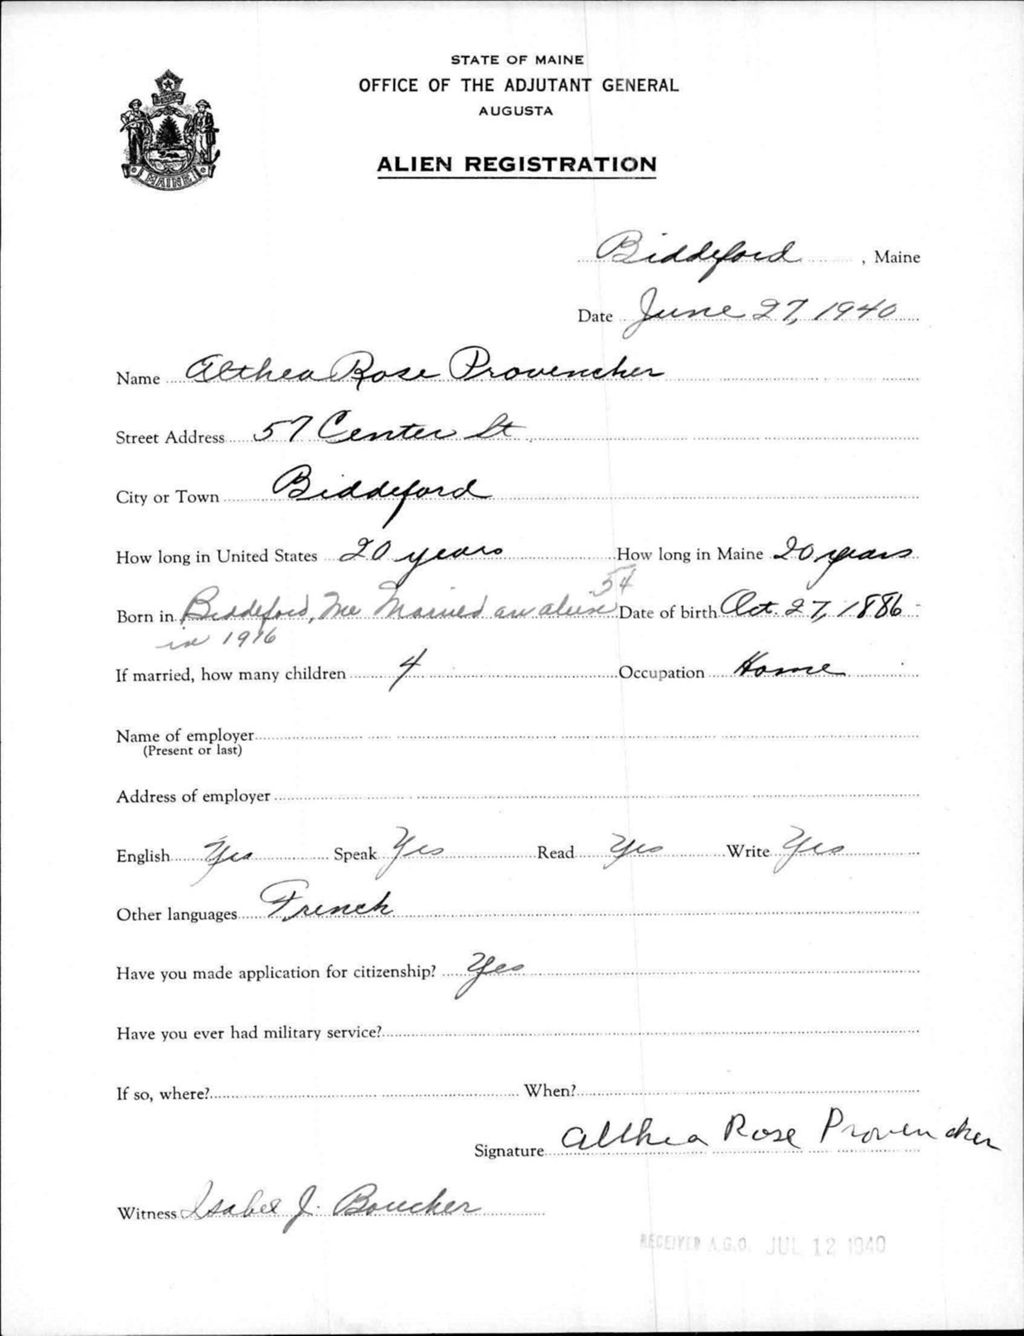 STATE OF MAINE
OFFICE OF THE ADJUTANT GENERAL
AUGUSTA
ALIEN REGISTRATION
MAINE
Biddeford, Maine
Date June 27, 1940
Name Althea Rose Provencher
Street Address 57 Center St.
City or Town Biddeford
How long in United States 20 years How long in Maine 20 years
54
Born in Biddeford, Me Married an alien Date of birth Oct. 27, 1886
in 1916
If married, how many children 4 Occupation Home
Name of employer
(Present or last)
Address of employer
English Yes Speak Yes Read Yes Write Yes
Other languages French
Have you made application for citizenship? Yes
Have you ever had military service?
If so, where? When?
Signature Althea Rose Provencher
Witness Isabel J. Boucher
RECEIVED A.G.O. JUL 12 1940